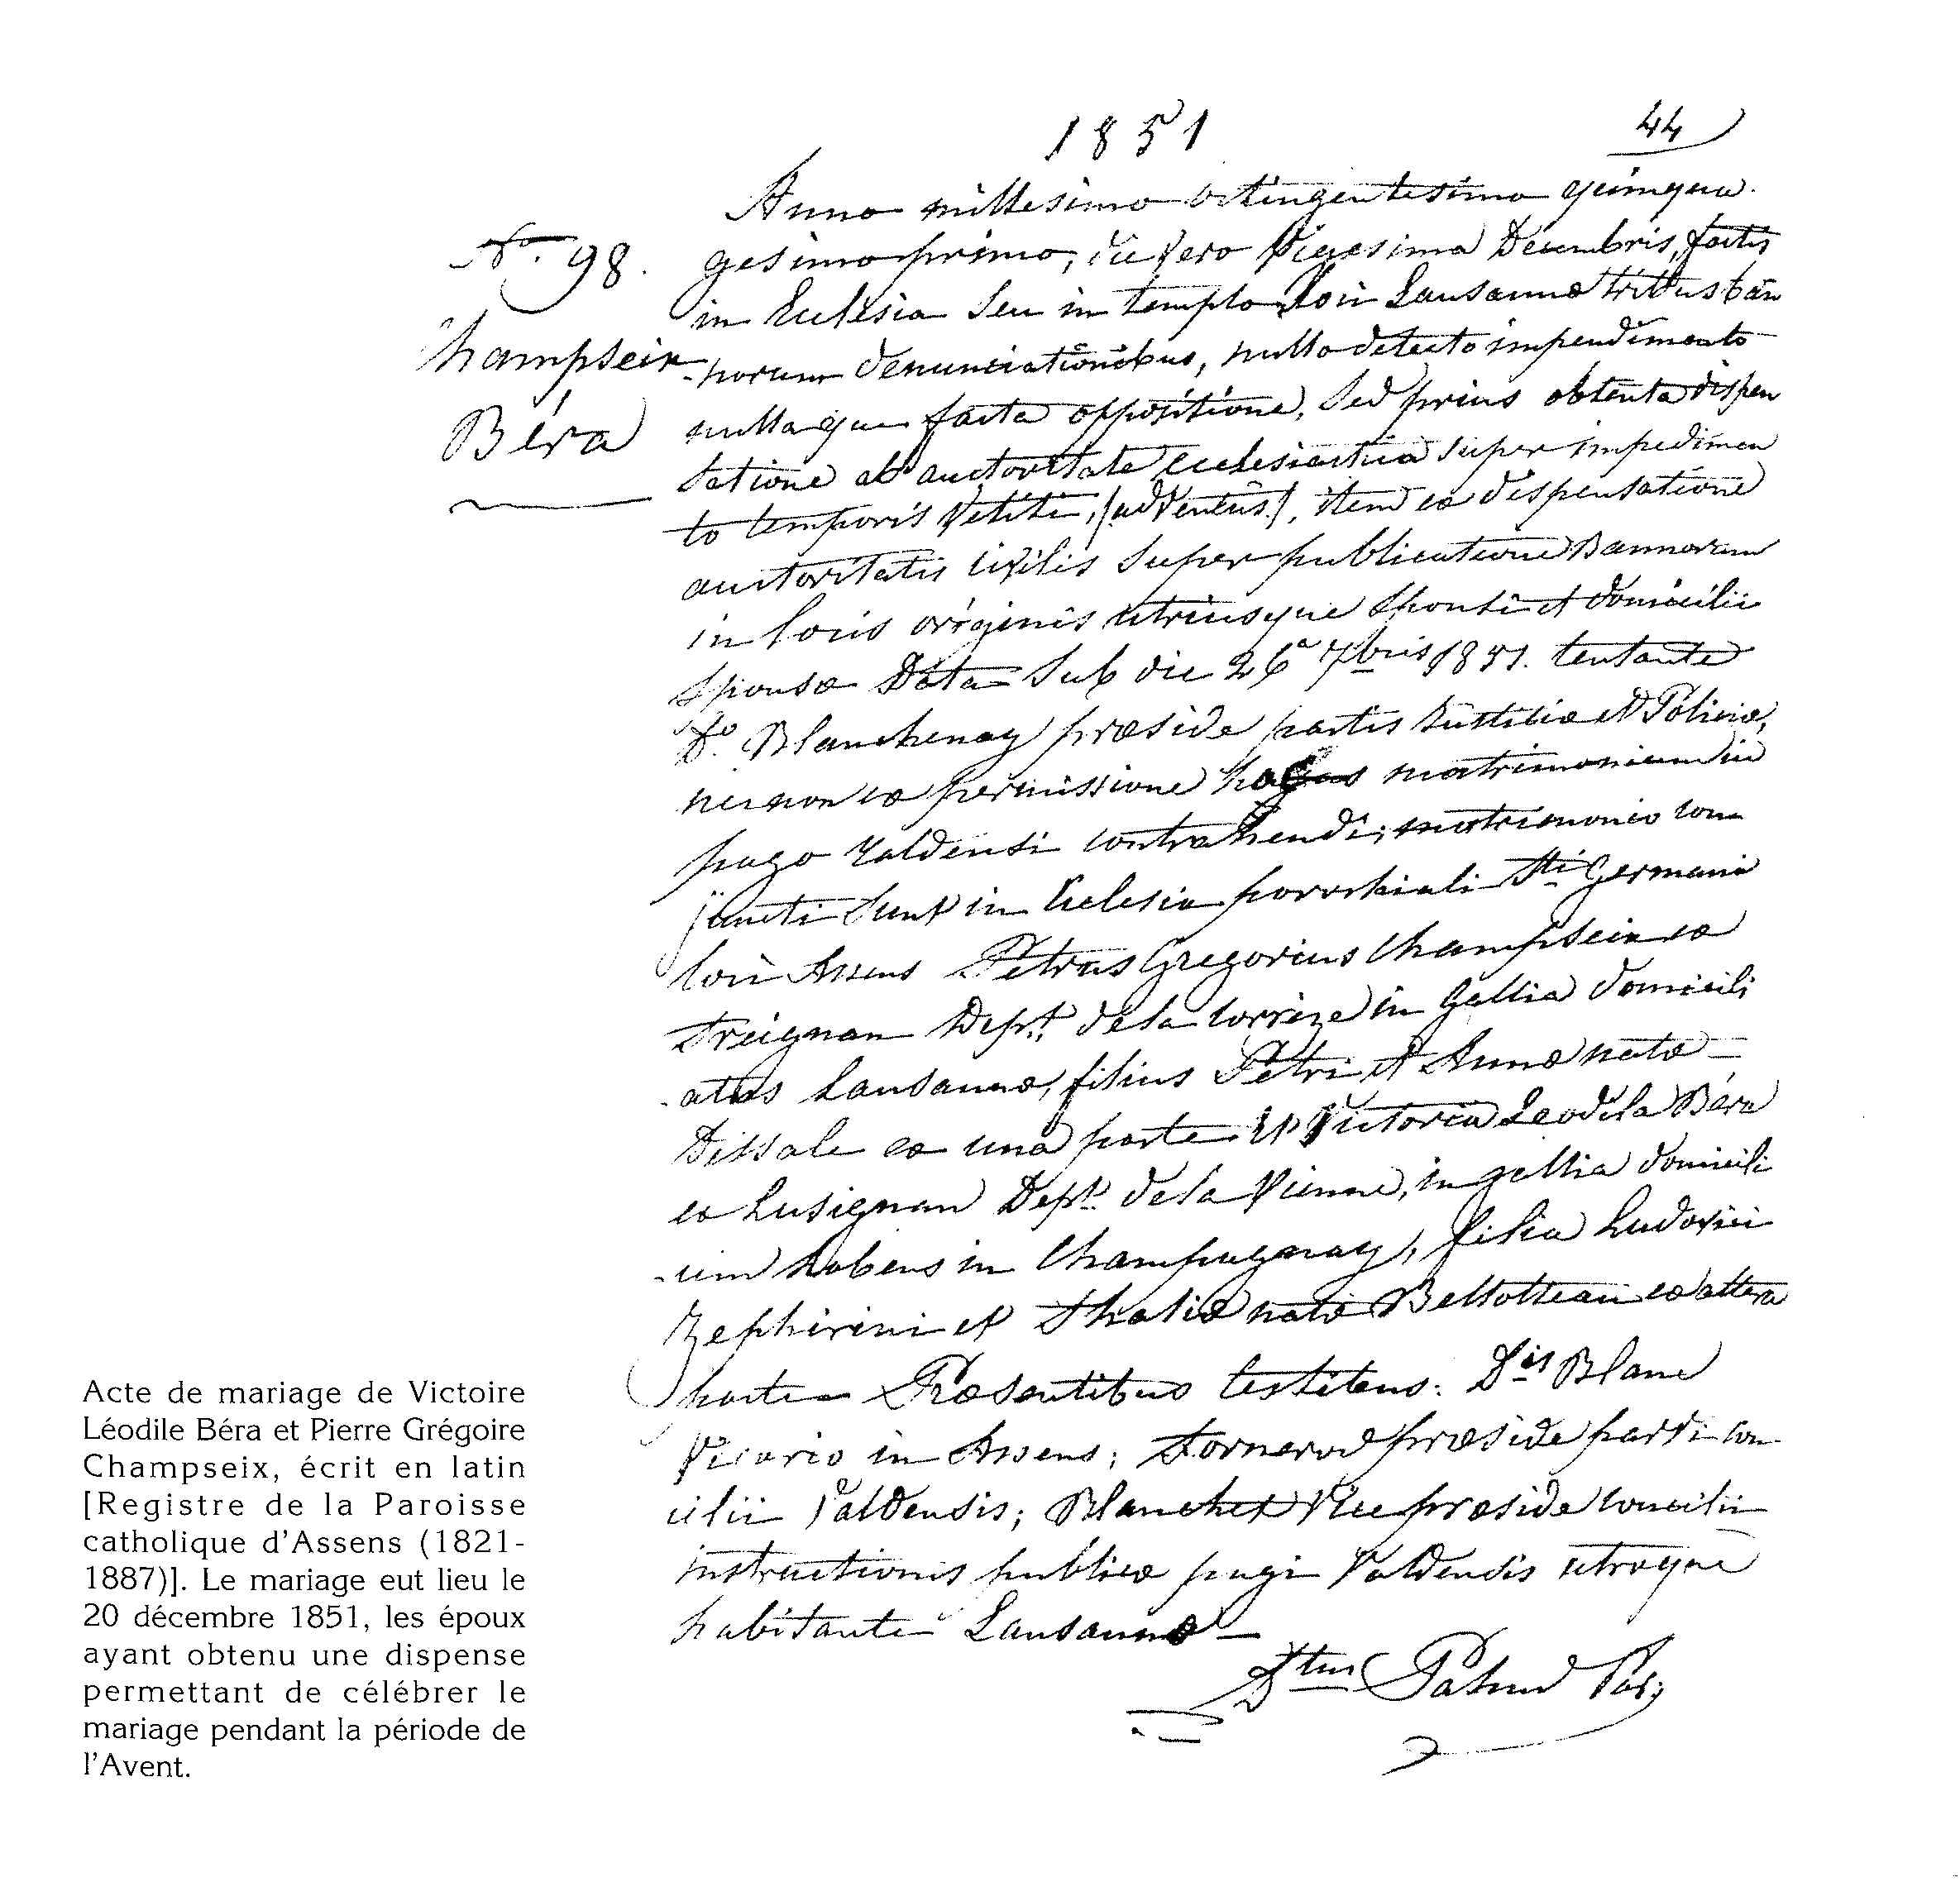 1851
44
Anno millesimo octingentesimo quinqua
gesimo primo, die vero vigesima Decembris, factis
in Eclesia seu in templo loci Lausannæ tribus ban
-norum denunciationibus, nullo detecto impendimento
nullaque facta oppositione, sed prius obtenta dispen
satione ab auctoritate ecclesiastica super impedimen
to temporis vetiti, (adventus), item ex dispensatione
auctoritatis civilis super publicatione Bannorum
in locis originis utriusque sponsi et domicilii
sponsæ Data sub die 26a 7bris 1851.
Do. Blanchenay præside partis Justitiæ et Policiæ,
necnon ex permissione matrimonium in
pago valdensi contrahendi; matrimonio con
juncti sunt in Eclesia parochiali Sti Germani
loci Assens Petrus Gregorius Champseix ex
Treignan Dept. de la Corrèze in Gallia domicili
-atus Lausannæ, filius Petri et Annæ natæ
Dissale ex una parte et Victoria Leodila Béra
ex Lusignan Dept. de la Vienne, in gallia domicili
-um habens in Champagnay, filia Ludovici
Zephirini et Thaliæ natæ Bellotteau ex altera
parte Præsentibus testibus: Dis Blanc
Vicario in Assens; Fornerod præside parti con
cilii Valdensis; Blanchet Vice præside concilii
instructionis publicæ pagi Valdensis utroque
habitante Lausannæ
Dtus Pahud Par;
No. 98.
Champseix
Béra
Acte de mariage de Victoire
Léodile Béra et Pierre Grégoire
Champseix, écrit en latin
[Registre de la Paroisse
catholique d'Assens (1821-
1887)]. Le mariage eut lieu le
20 décembre 1851, les époux
ayant obtenu une dispense
permettant de célébrer le
mariage pendant la période de
l'Avent.